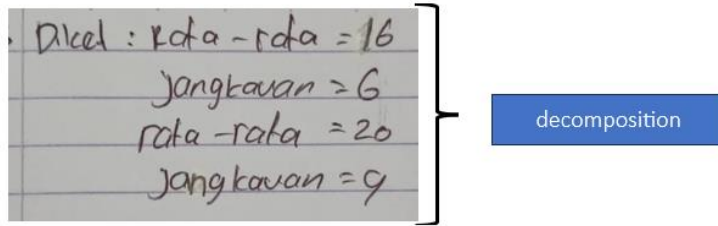 . Diket : Rata - rata = 16
Jangkauan = 6
rata - rata = 20
Jangkauan = 9
decomposition